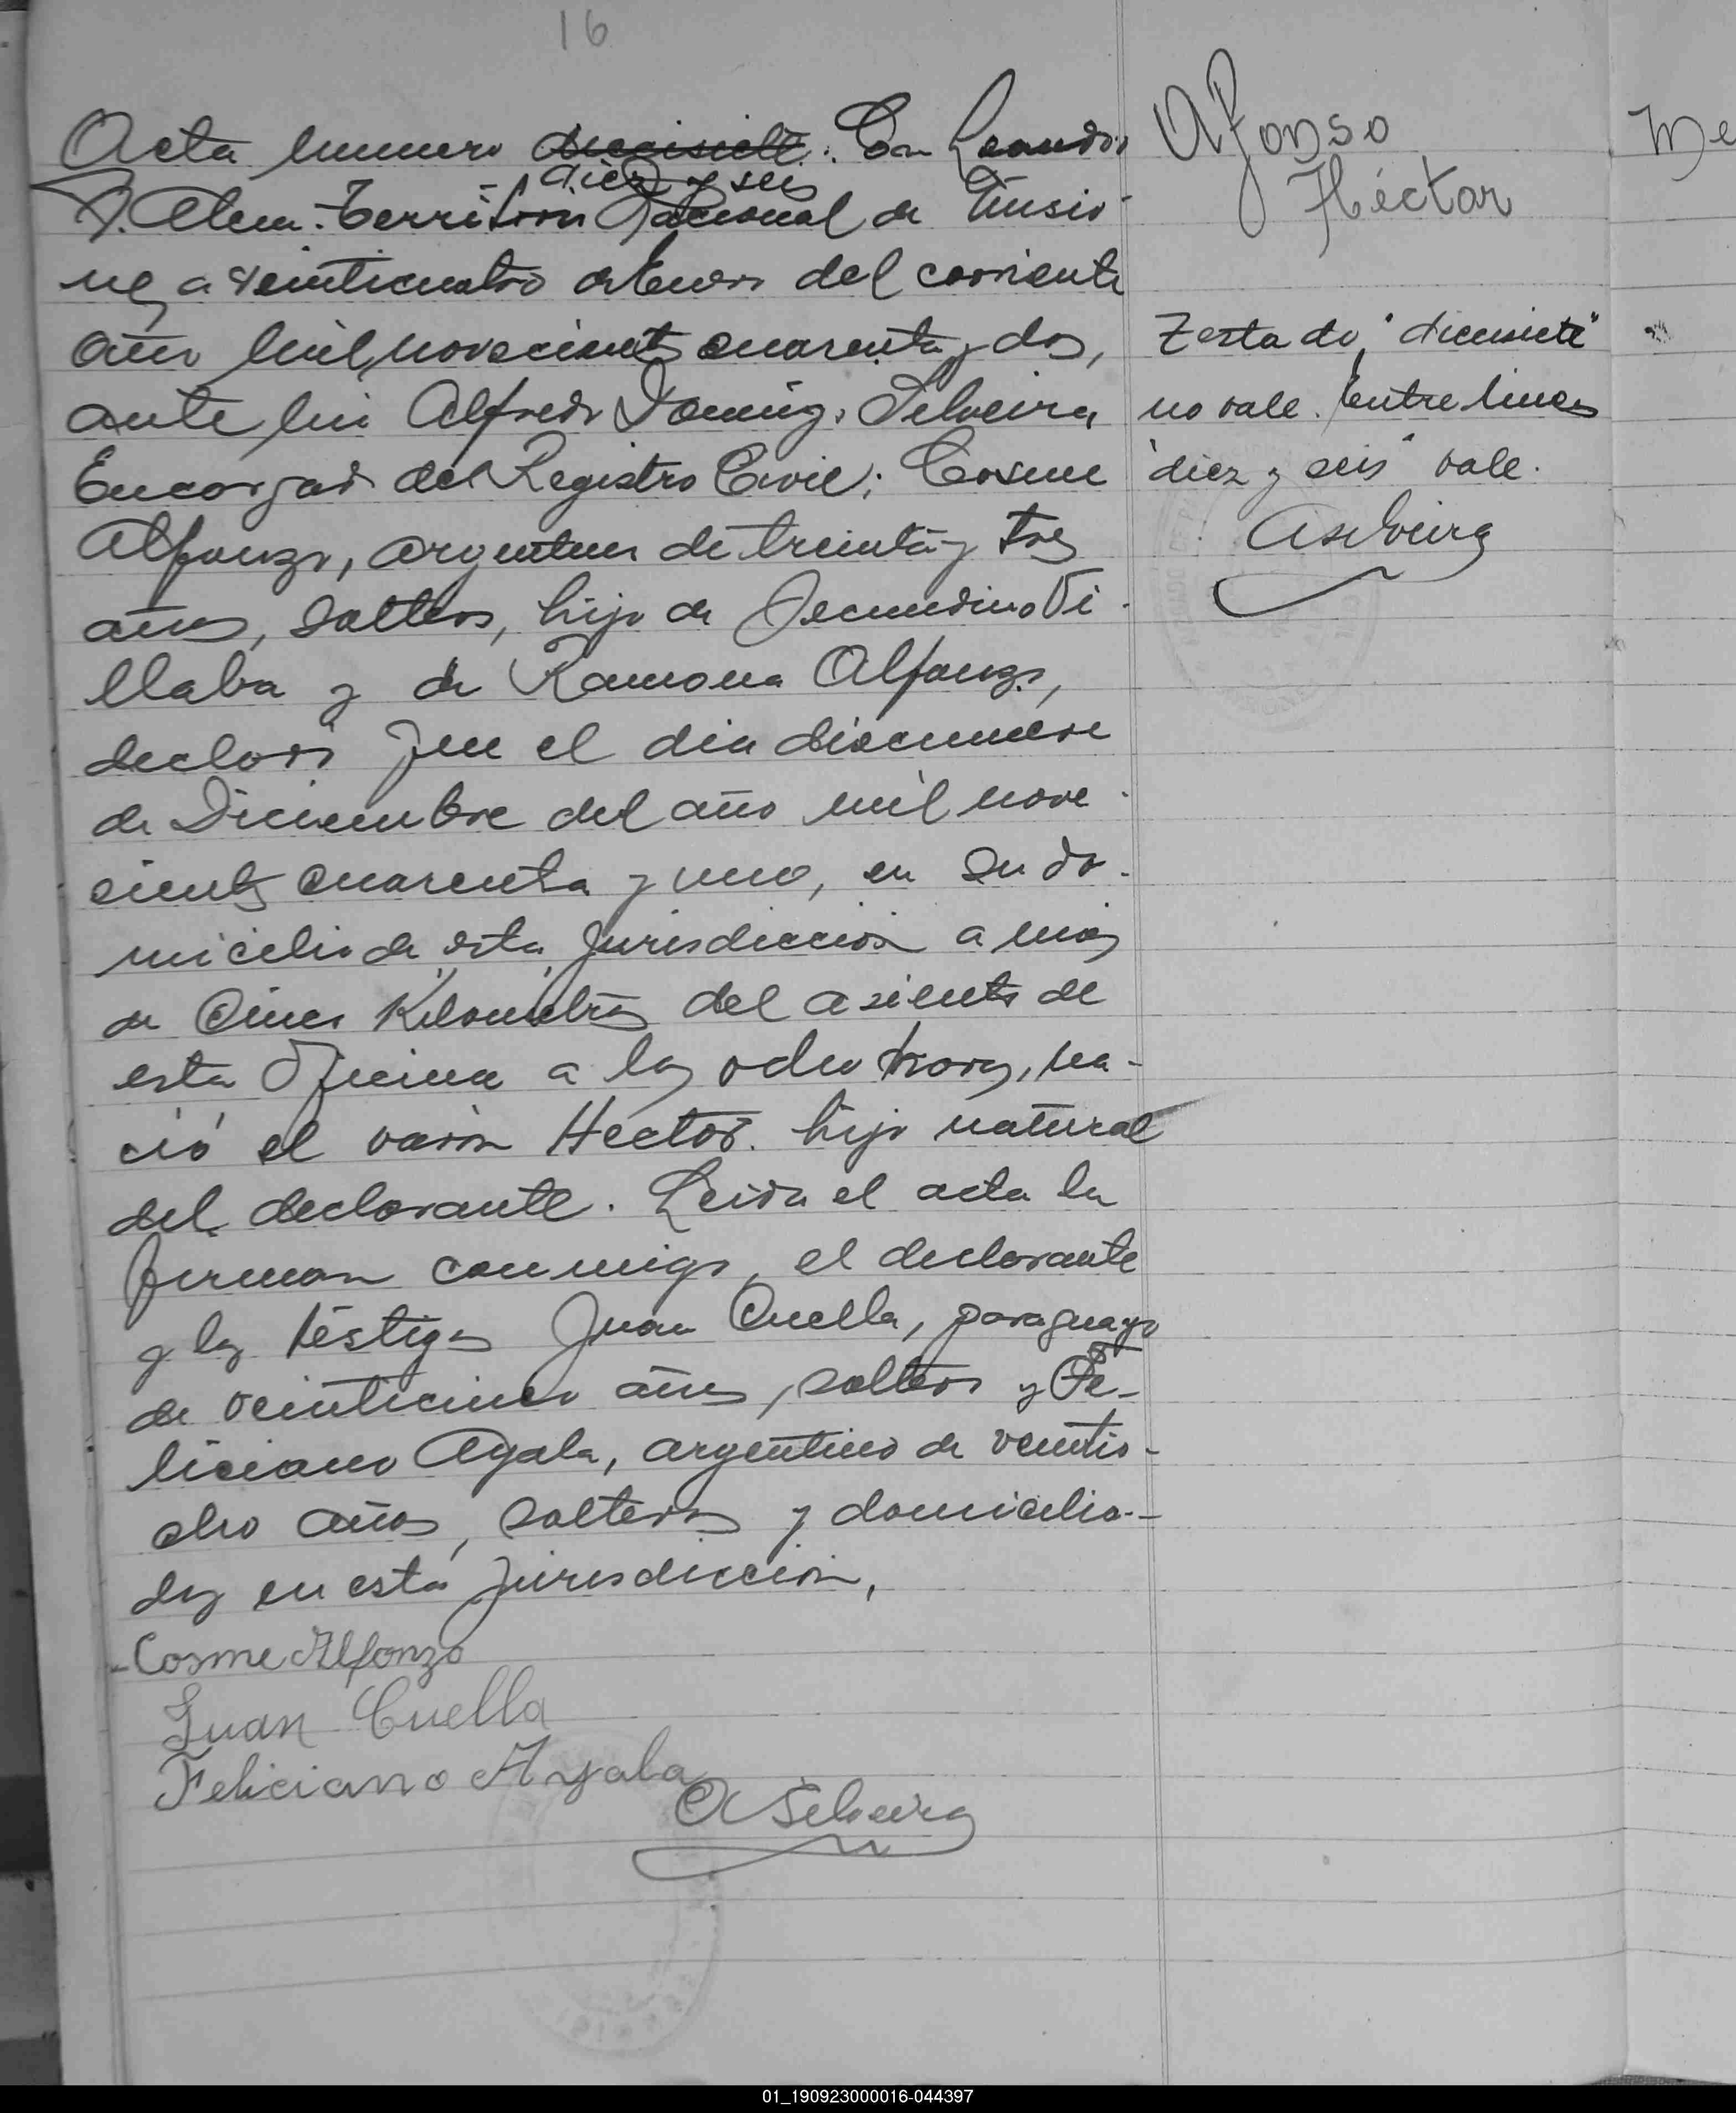 16
Acta numero diecisiete. En Leandro
diez y seis
N. Alem. Territorio Nacional de Misio-
nes a veinticuatro de Enero del corriente
año mil novecientos cuarenta y dos,
ante mi Alfredo Doming. Silveira,
Encargado del Registro Civil; Cosme
Alfonzo, argentino de treinta y tres
años, soltero, hijo de Secundino Vi-
llaba y de Ramona Alfonzo,
declaró que el dia diecinueve
de Diciembre del año mil nove-
cientos cuarenta y uno, en su do-
micilio de esta jurisdiccion a más
de Cinco Kilometros del asiento de
esta Oficina a las ocho horas, na-
ció el varon Hector. hijo natural
del declarante. Leida el acta la
firman conmigo, el declarante
y los testigos Juan Cuella, paraguayo
de veinticinco años, soltero y Fe-
liciano Ayala, argentino de veintio-
cho años, solteros y domicilia-
dos en esta jurisdiccion,
Cosme Alfonzo
Juan Cuella
Feliciano Ayala
A Silveira
Alfonso
Héctor
Testado, "diecisiete"
no vale. Entre lineas
"diez y seis" vale.
A Silveira
Me
01_190923000016-044397